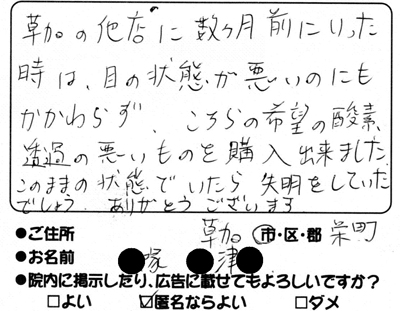 草加の他店に数ヶ月前にいった
時は、目の状態が悪いのにも
かかわらず、こちらの希望の酸素
透過の悪いものを購入出来ました
このままの状態でいたら、失明をしていた
でしょう。ありがとうございます
●ご住所 草加 市・区・郡 栄町
●お名前 塚 津
●院内に掲示したり、広告に載せてもよろしいですか?
□よい ☑匿名ならよい □ダメ